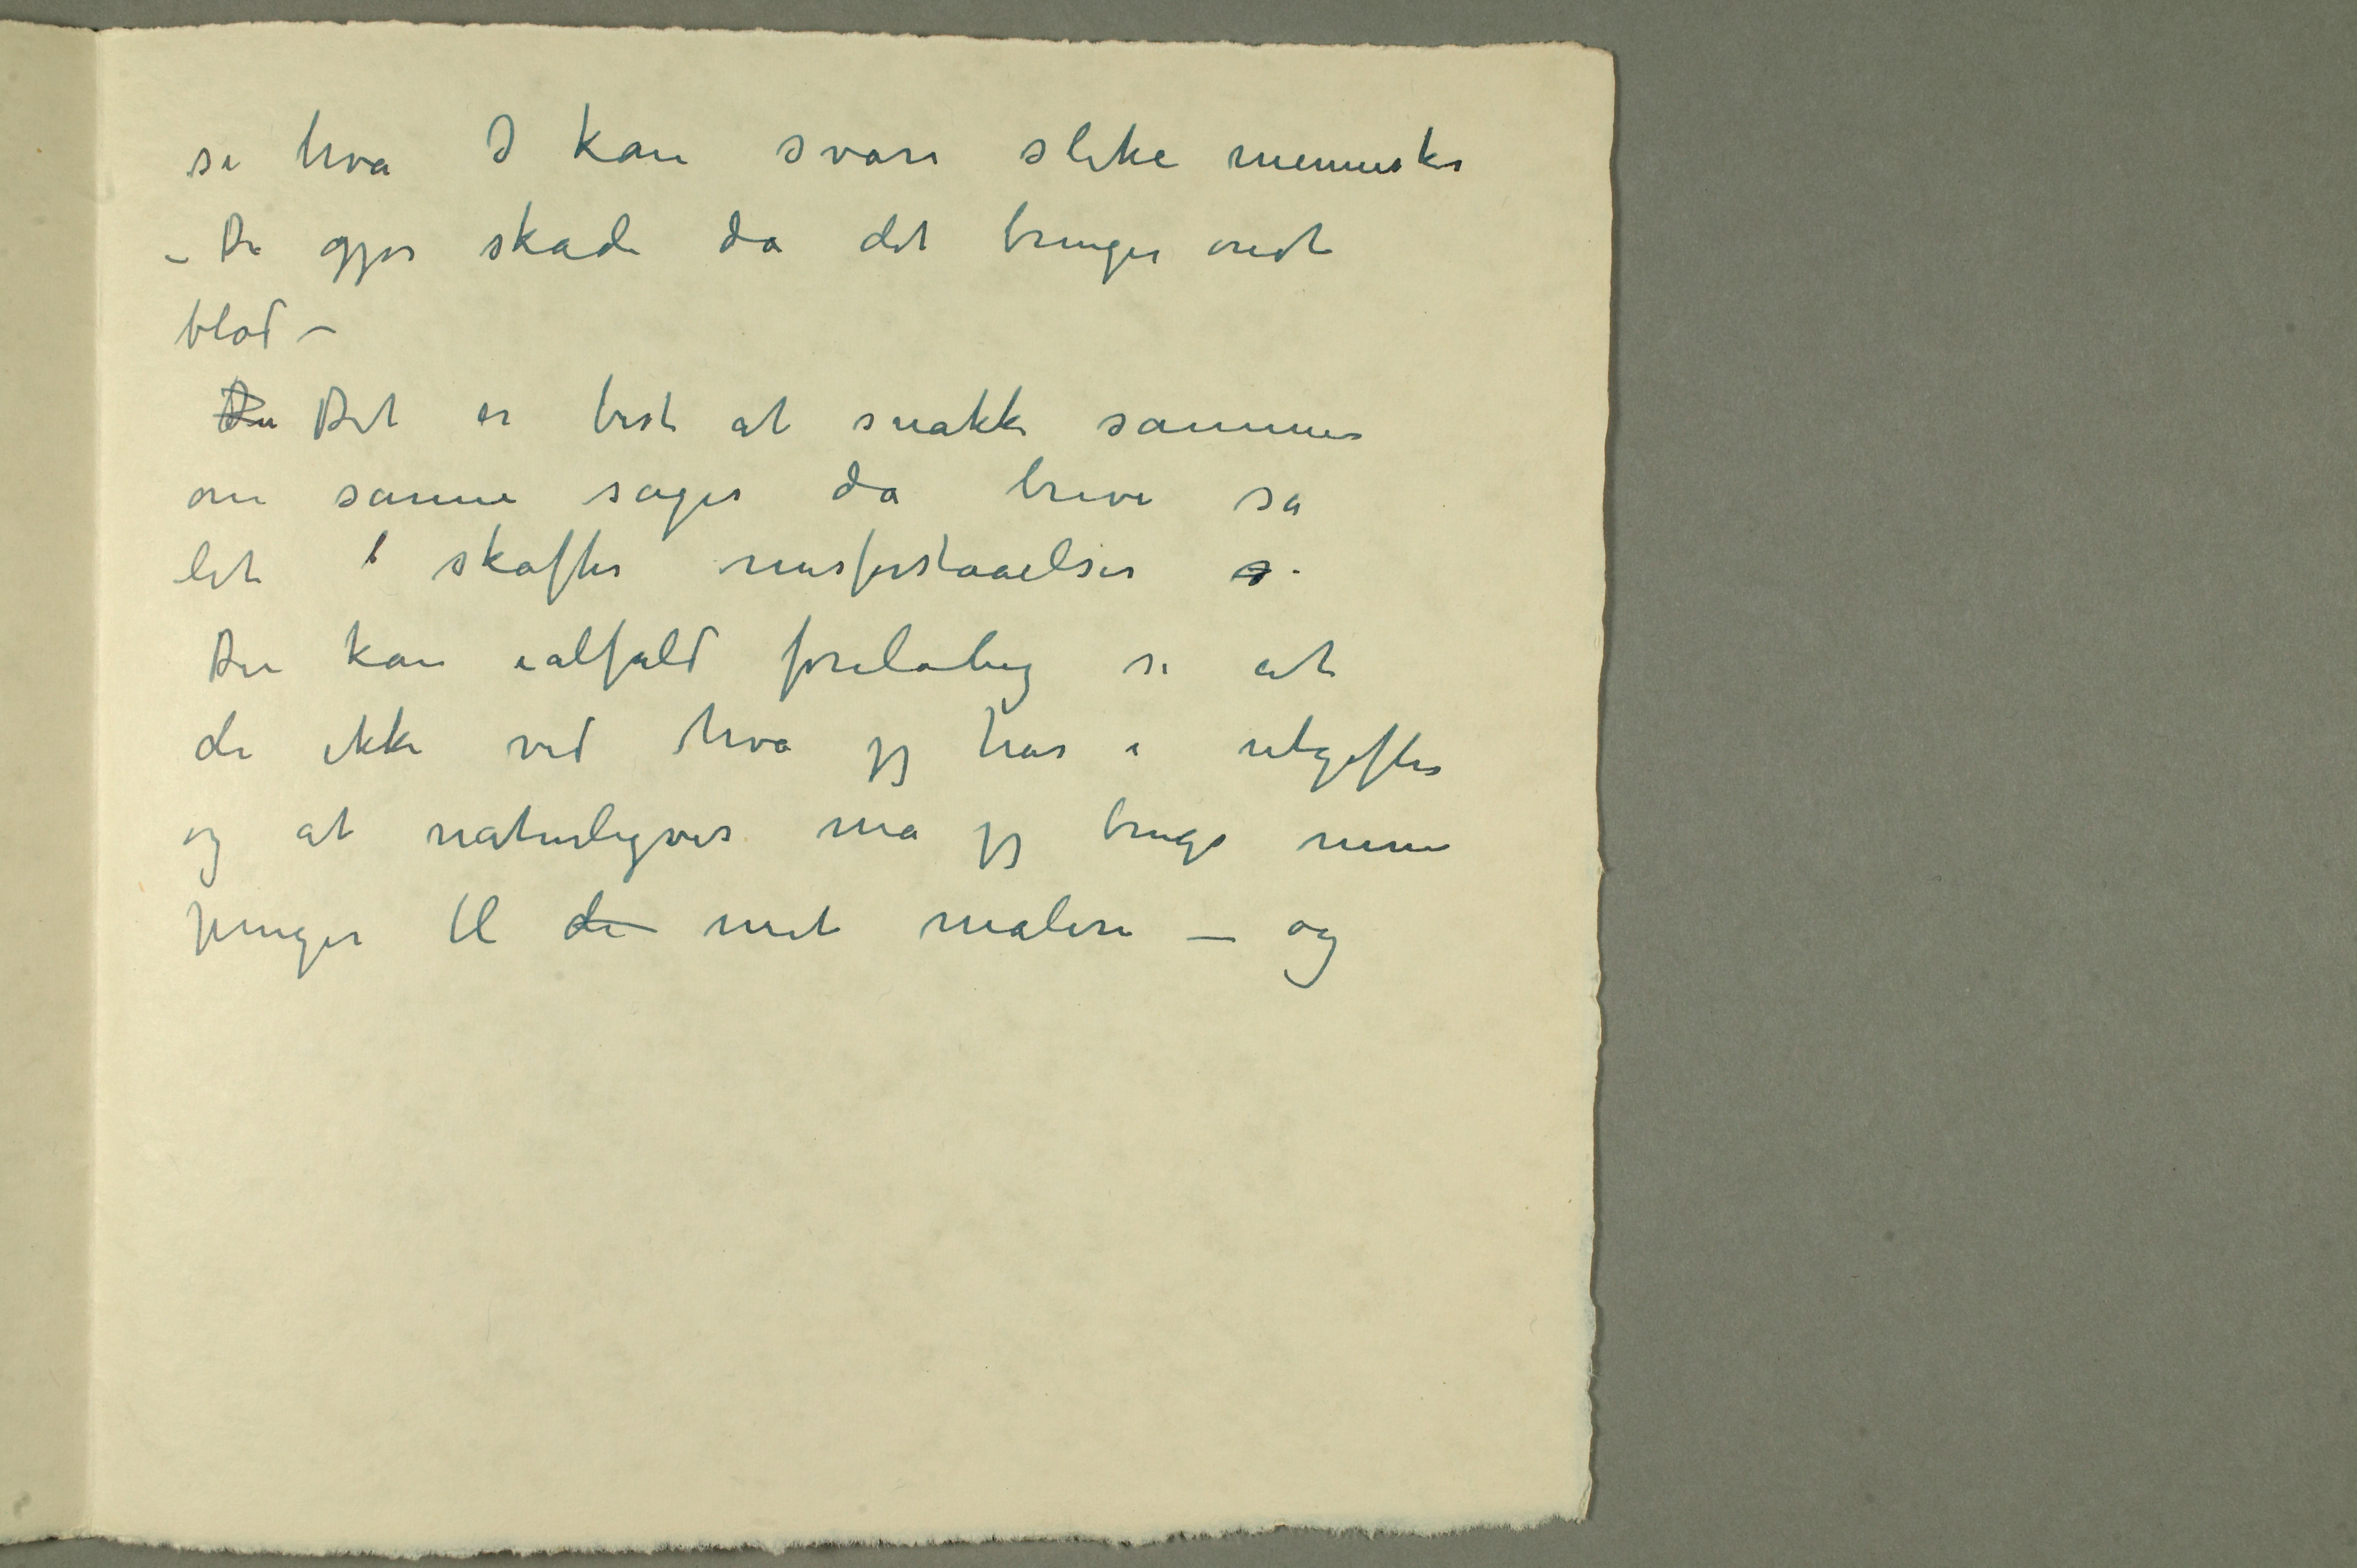 si hva I kan svare slike mennesker
– De gjør skade da det bringer ondt
blod –
Du Det er best at snakke sammen
om samme sager da breve så
let skafter misforstaaelser
Du kan ialfald foreløbig si at
de ikke ved hva jeg har i utgifter
og at naturligvis må jeg bruge mine
penger til de mit maleri – og